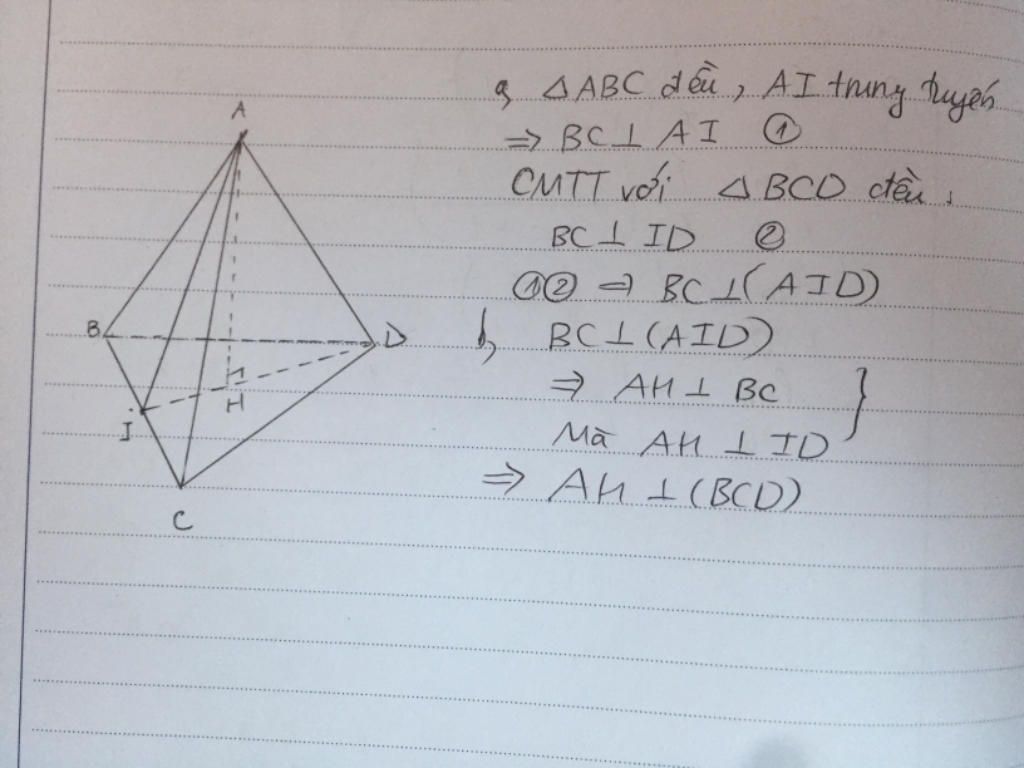 A
B
D
H
I
C
a, △ABC đều, AI trung tuyến
⇒ BC ⊥ AI ①
CMTT với △BCD đều,
BC ⊥ ID ②
①② ⇒ BC ⊥ (AID)
b, BC ⊥ (AID)
⇒ AH ⊥ BC
Mà AH ⊥ ID
⇒ AH ⊥ (BCD)